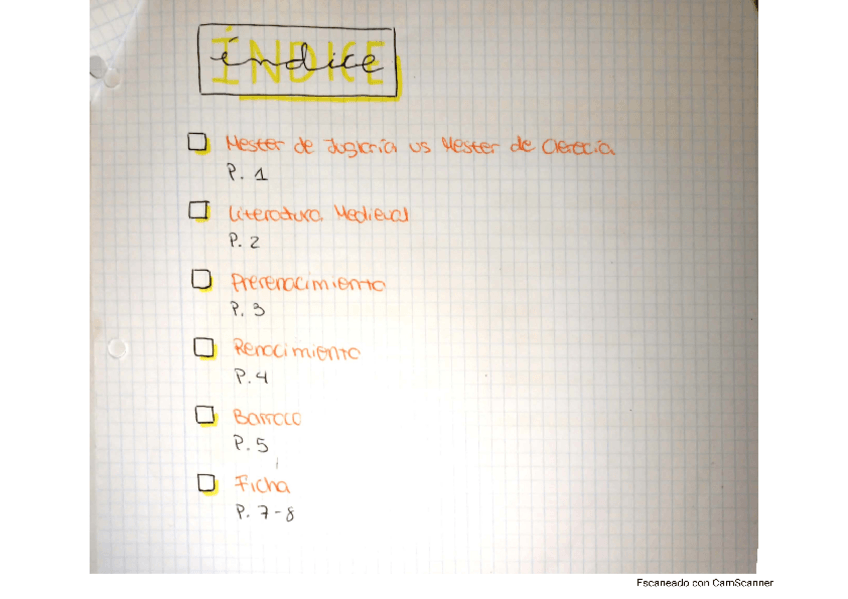 ÍNDICE
índice
Mester de Juglaría vs Mester de Clerecía
P. 1
Literatura Medieval
P. 2
Prerenacimiento
P. 3
Renacimiento
P. 4
Barroco
P. 5
Ficha
P. 7-8
Escaneado con CamScanner